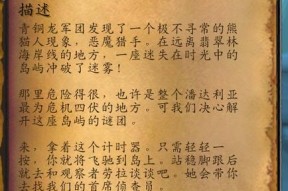 描述
青铜龙军团发现了一个极不寻常的熊
猫人现象，恶魔猎手。在远离翡翠林
海岸线的地方，一座迷失在时光中的
岛屿冲破了迷雾！
那里危险得很，也许是整个潘达利亚
最为危机四伏的地方。可我们决心解
开这座岛屿的谜团。
来，拿着这个计时器。只需轻轻一
按，你就将飞驰到岛上。站稳脚跟后
就去和观察者劳拉谈谈吧。她会带你
去找我们的首席侦查员。